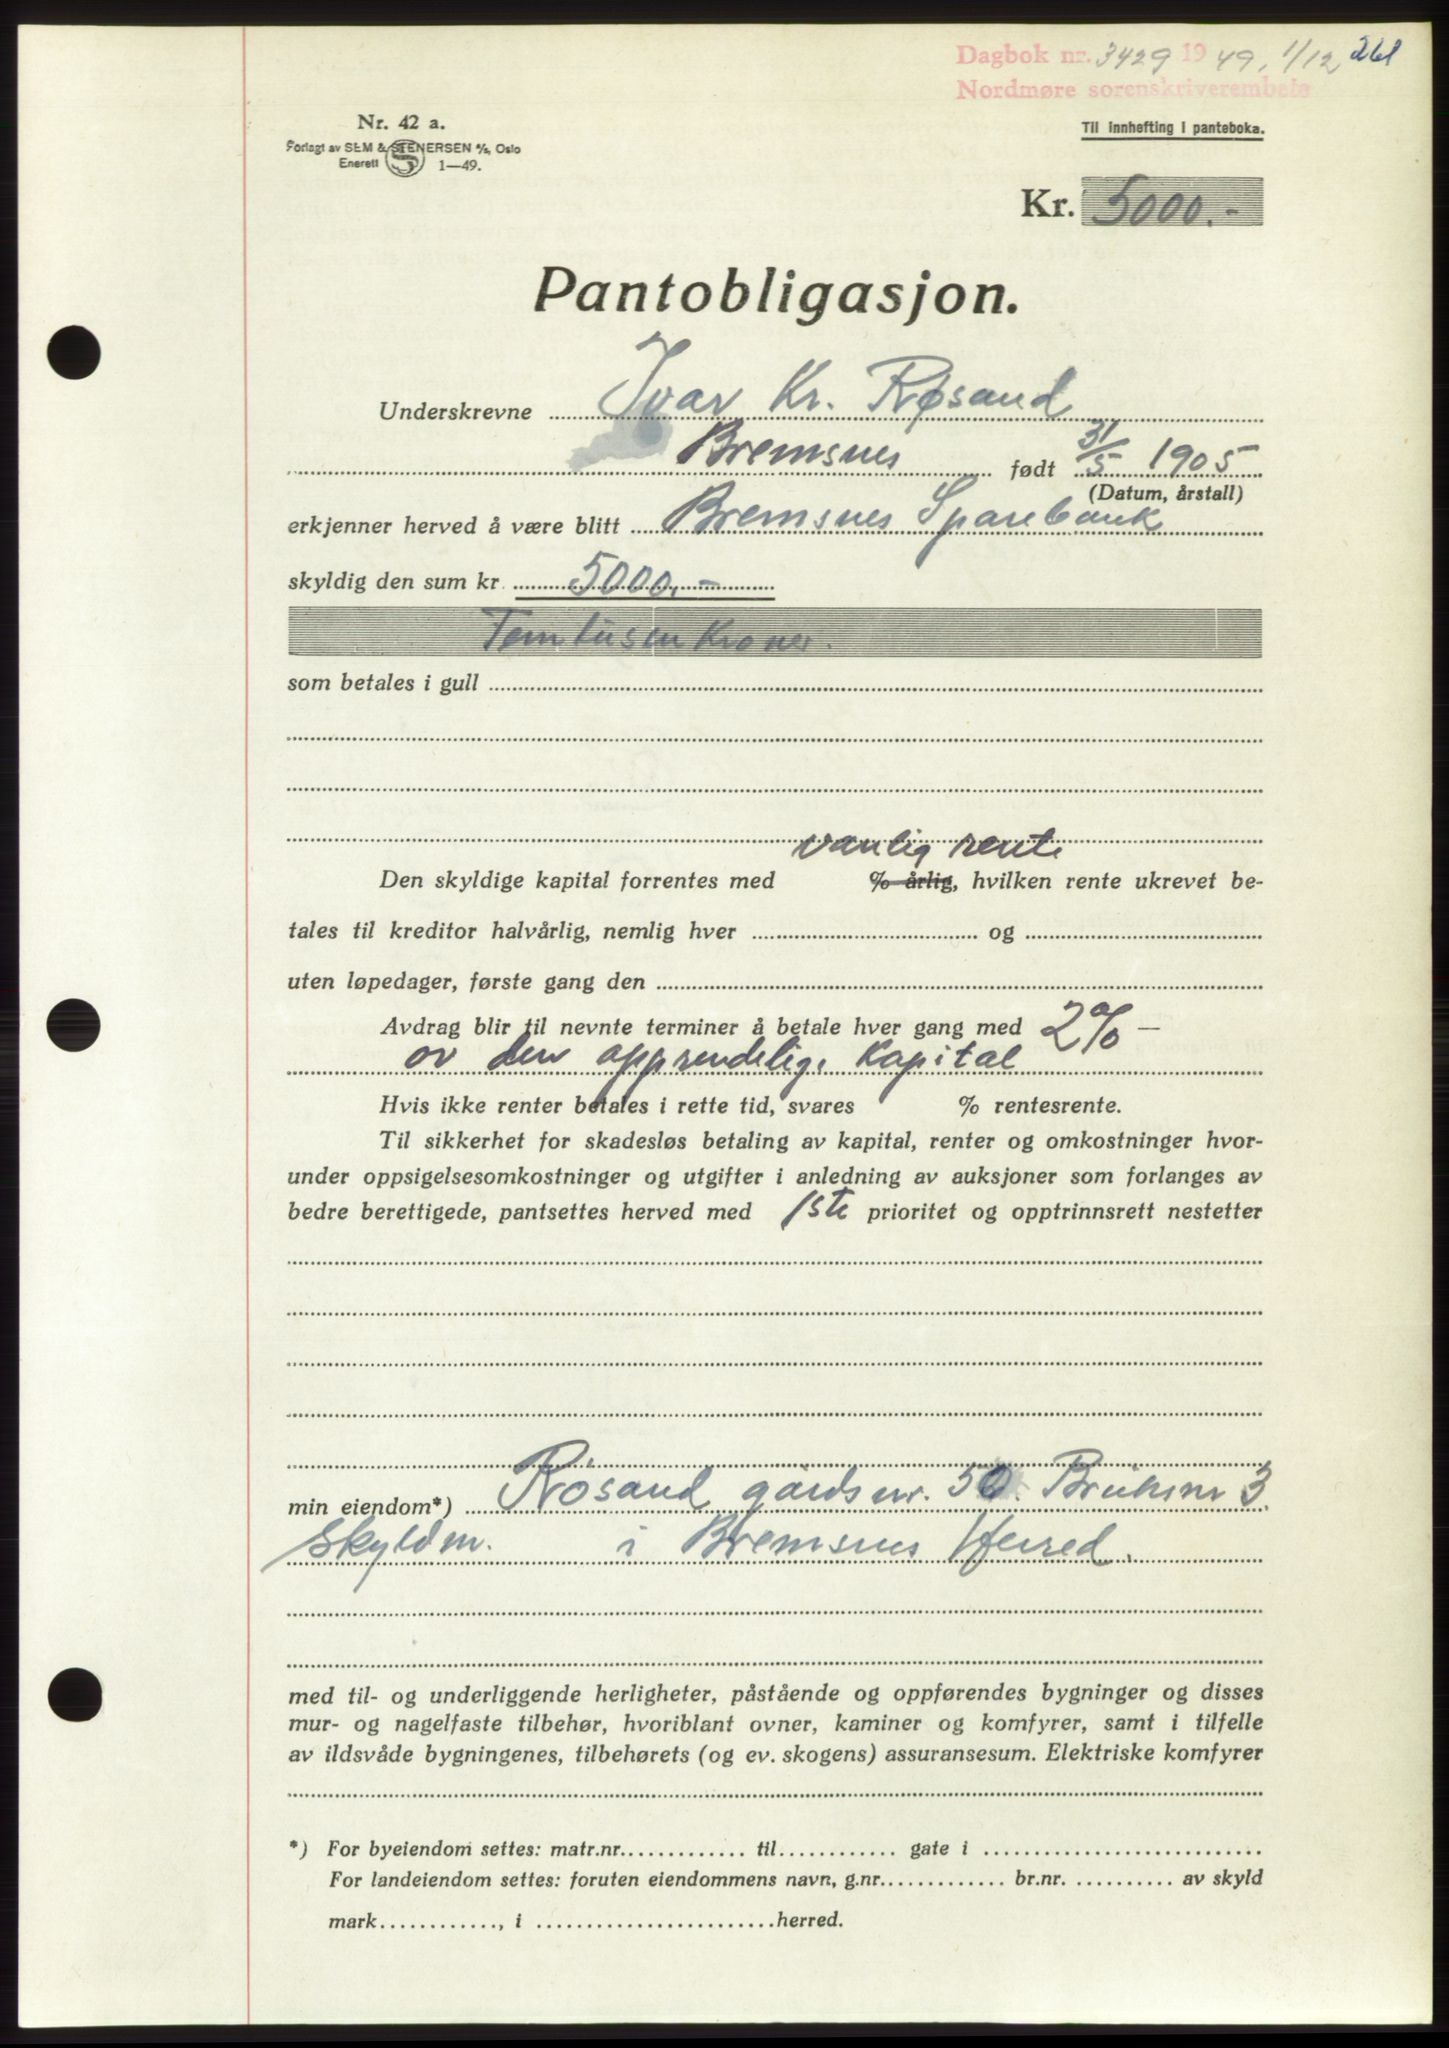 Dagbok nr. 3429 1949, 1/12 261
Nordmøre sorenskriverembete
Nr. 42 a.
Forlagt av SEM & STENERSEN A/S, Oslo
Enerett S 1—49.
Til innhefting i panteboka.
Kr. 5000.-
Pantobligasjon.
Underskrevne Ivar Kr. Røsand
Bremsnes født 31/5 1905
(Datum, årstall)
erkjenner herved å være blitt Bremsnes Sparebank
skyldig den sum kr. 5000.-
Femtusen Kroner.
som betales i gull
vanlig rente
Den skyldige kapital forrentes med % årlig, hvilken rente ukrevet be-
tales til kreditor halvårlig, nemlig hver og
uten løpedager, første gang den
Avdrag blir til nevnte terminer å betale hver gang med 2% —
av den opprendelige Kapital
Hvis ikke renter betales i rette tid, svares % rentesrente.
Til sikkerhet for skadesløs betaling av kapital, renter og omkostninger hvor-
under oppsigelsesomkostninger og utgifter i anledning av auksjoner som forlanges av
bedre berettigede, pantsettes herved med 1ste prioritet og opptrinnsrett nestetter
min eiendom*) Røsand gårdsnr. 50. Bruksnr 3.
Skyldm. i Bremsnes Herred.
med til- og underliggende herligheter, påstående og oppførendes bygninger og disses
mur- og nagelfaste tilbehør, hvoriblant ovner, kaminer og komfyrer, samt i tilfelle
av ildsvåde bygningenes, tilbehørets (og ev. skogens) assuransesum. Elektriske komfyrer
*) For byeiendom settes: matr.nr. til gate i
For landeiendom settes: foruten eiendommens navn, g.nr. br.nr. av skyld
mark , i herred.